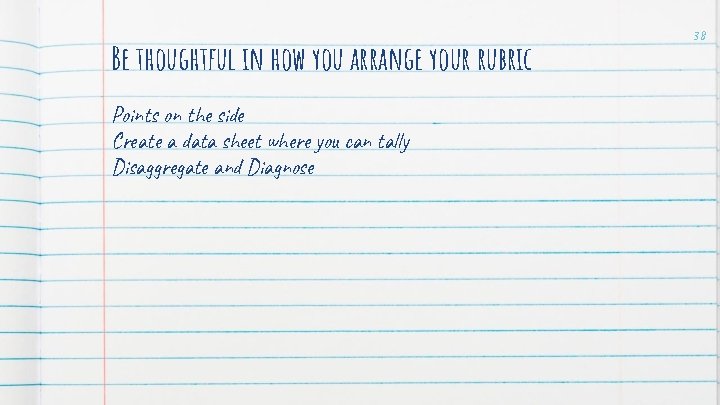 38
Be thoughtful in how you arrange your rubric
Points on the side
Create a data sheet where you can tally
Disaggregate and Diagnose